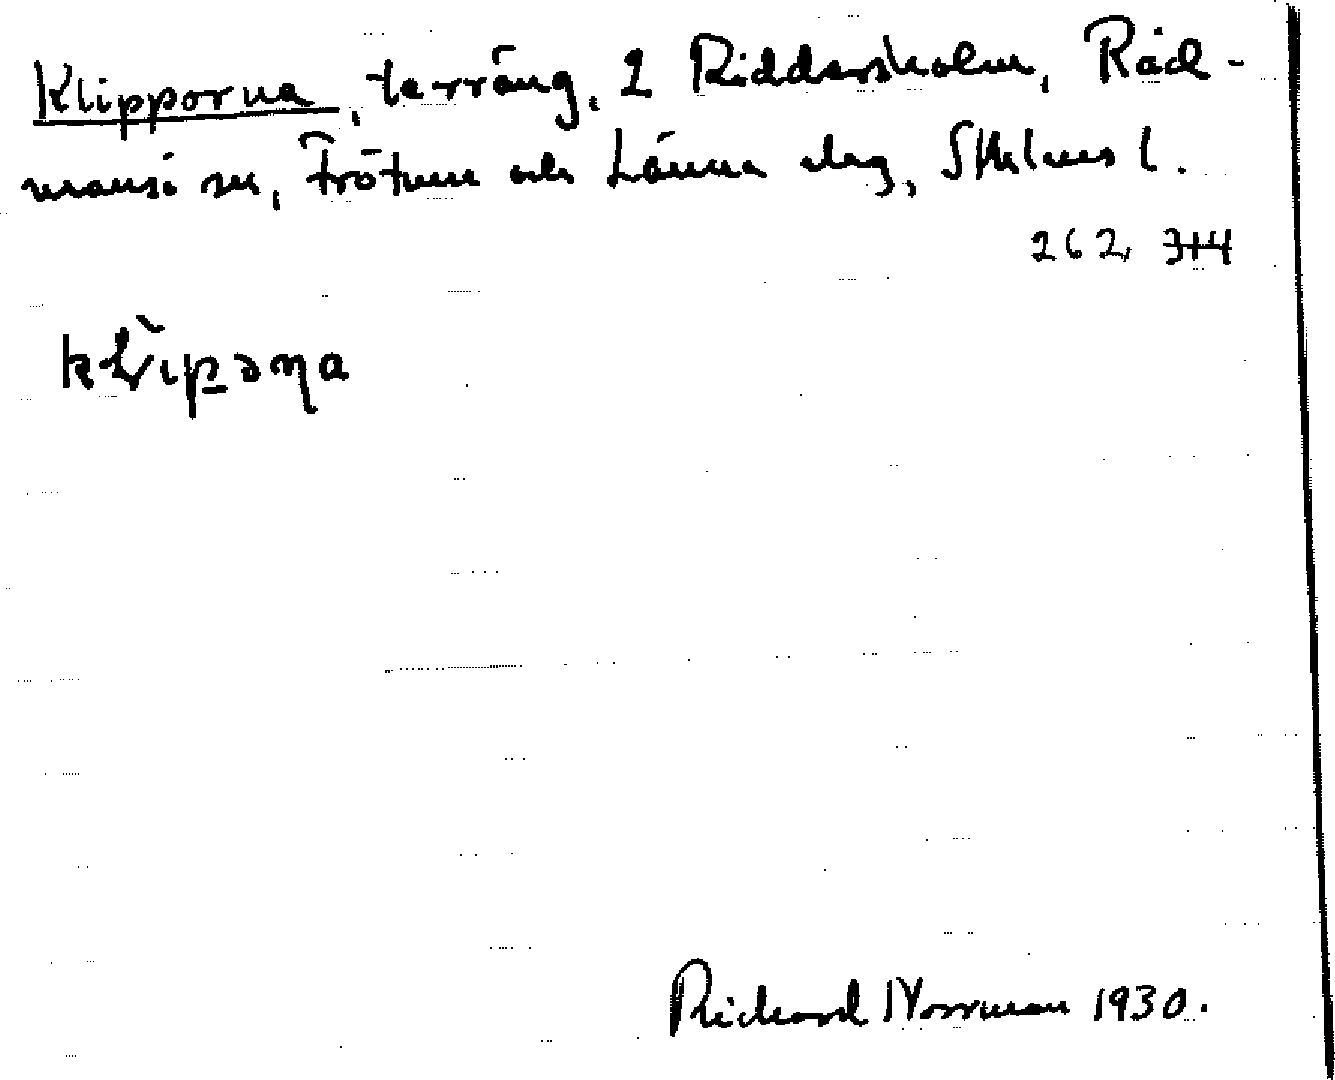 Klipporna, terräng, 2 Riddersholm, Råd-
mansö sn, Frötuna och Länna slag, Sthlms l.
262, 3+4
Richard Norrman 1930.